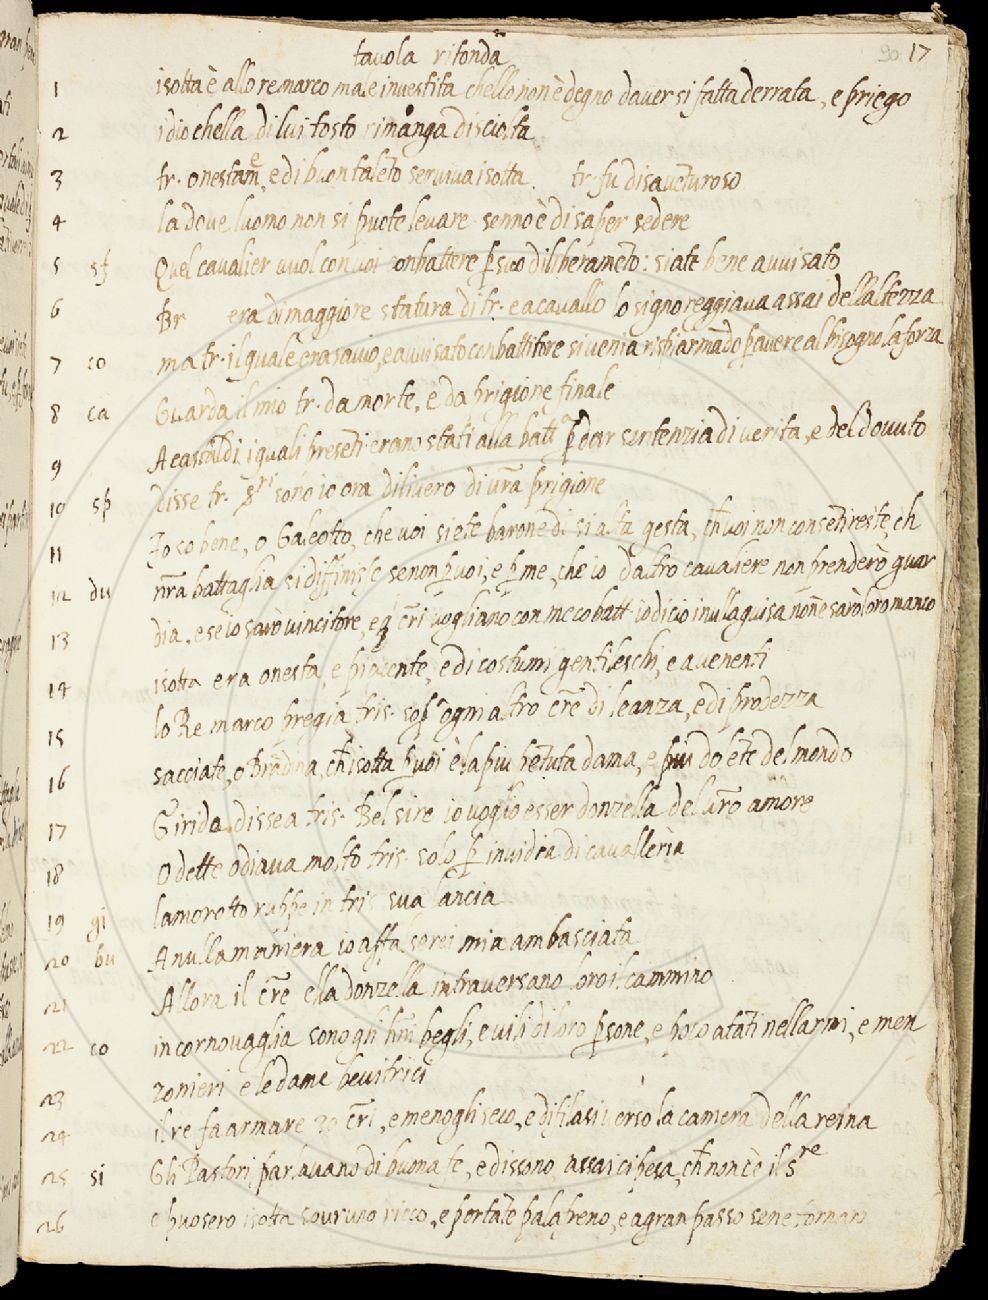 tavola ritonda
90 17
1 isotta è allo re marco male investita chello non è degno daver si fatta derrata, e priego
2 idio chella di lui tosto rimanga disciolta
3 tr. onestame͠, e di buon talẽto serviva isotta. tr. fu disavẽturoso
4 la dove luomo non si puote levare senno è di saper sedere
5 sf Quel cavalier vuol con voi conbattere p̱ suo diliberamẽto: siate bene avvisato
6 Br era di maggiore statura di tr. e a cavallo lo signoreggiava assai dellaltezza
7 co ma tr. il quale era savio, e avvisato conbattitore si venia risp̱iarmãdo p̱ avere al bisogno la forza
8 ca Guarda il mio tr. da morte, e da prigione finale
9 A castaldi i quali presẽti erano stati alla batt. p̱ dar sentenzia di verita, e del dovuto
10 sp disse tr. s͠ri sono io ora dilivero di vr̃a prigione
11 Io so bene, o Galeotto, che voi siete barone di si alta gesta, ch̃ voi non consẽtireste, ch̃
12 du nr̃a battaglia si diffinisse se non p̱ voi, e p̱ me, che io daltro cavaliere non prenderò guar
13 dia, e se io sarò vincitore, e q̃ cr̃i vogliano con meco batt. io dico in nulla guisa nõ ne sarò loro manco
14 isotta era onesta, e piacente, e di costumi gentileschi, e avenenti
15 lo Re marco pregia tris. sop̱ ogni altro cr̃e di leanza, e di prodezza
16 sacciate, o Brãdina, ch̃ isotta p̱ voi è la piu pẽtuta dama, e piu dolẽte del mondo
17 Girida disse a tris. Bel sire io voglio esser donzella del vr̃o amore
18 Odette odiava molto tris. solo p̱ invidia di cavalleria
19 gi lamorotto ruppe in tris sua lancia
20 bu A nulla maniera io affalserei mia ambasciata
21 Allora il cr̃e ella donzella intraversano loro il cammino
22 co in cornovaglia sono gli hm̃ begli, e vili di loro p̱sone, e poco atãti nellarmi, e men
23 zonieri e le dame bevitrici
24 il re fa armare 20 cr̃i, e menogli seco, e difilasi verso la camera della reina
25 si Gli Pastori parlavano di buona fe, e dissono, assai ci pesa, ch̃ non cè il sre
26 e puosero isotta sovr uno ricco, e portãte palafreno, e a gran passo sene tornaro